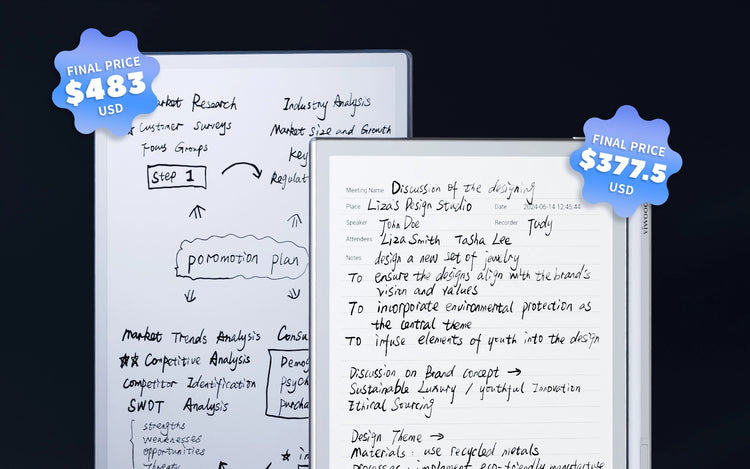 FINAL PRICE
$483
USD
Market Research
Customer Surveys
Focus Groups
Step 1
Industry Analysis
Market Size and Growth
Key
Regulat
poromotion plan
Market Trends Analysis
★★ Competitive Analysis
Competitor Identification
SWOT Analysis
strengths
weaknesses
opportunities
Threats
Consu
Demog
psych
purcha
* in
FINAL PRICE
$377.5
USD
viwoo
Meeting Name Discussion of the designing
Place Liza's Design Studio Date 2024-06-14 12:45:44
Speaker John Doe Recorder Judy
Attendees Liza Smith Tasha Lee
Notes design a new set of jewelry
To ensure the designs align with the brand's
vision and values
To incorporate environmental protection as
the central theme
To infuse elements of youth into the design
Discussion on Brand concept →
Sustainable Luxury / youthful Innovation
Ethical Sourcing
Design Theme →
Materials: use recycled metals
processes: implement eco-friendly manufacture